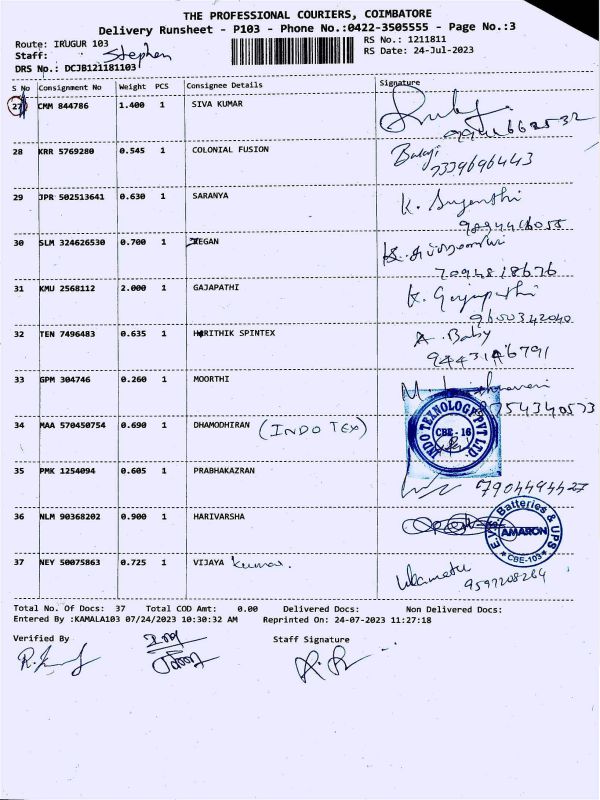 THE PROFESSIONAL COURIERS, COIMBATORE
Delivery Runsheet - P103 - Phone No.:0422-3505555 - Page No.:3
Route: IRUGUR 103 RS No.: 1211811
Staff: Stephen RS Date: 24-Jul-2023
DRS No.: DCJB121181103
S No Consignment No Weight PCS Consignee Details Signature
27 CMM 844786 1.400 1 SIVA KUMAR
28 KRR 5769280 0.545 1 COLONIAL FUSION Balaji
7339696443
29 JPR 502513641 0.630 1 SARANYA K. Suganthi
9894416055
30 SLM 324626530 0.700 1 JEGAN
7094818676
31 KMU 2568112 2.000 1 GAJAPATHI K. Gajapathi
9650342040
32 TEN 7496483 0.635 1 HARITHIK SPINTEX A. Baby
9443146791
33 GPM 304746 0.260 1 MOORTHI
9754340573
34 MAA 570450754 0.690 1 DHAMODHIRAN (INDO TEX) INDO TEXNOLOGE PVT LTD. CBE - 16
35 PMK 1254094 0.605 1 PRABHAKAZRAN 7904494427
36 NLM 90368202 0.900 1 HARIVARSHA Batteries & UPS AMARON CBE-103
37 NEY 50075863 0.725 1 VIJAYA Kumar.
9597208264
Total No. Of Docs: 37 Total COD Amt: 0.00 Delivered Docs: Non Delivered Docs:
Entered By :KAMALA103 07/24/2023 10:30:32 AM Reprinted On: 24-07-2023 11:27:18
Verified By Staff Signature